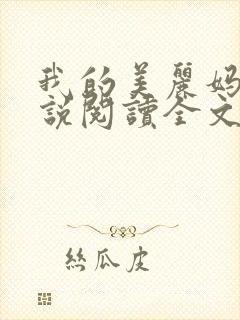 我的美麗媽
說閱讀全文
絲瓜皮